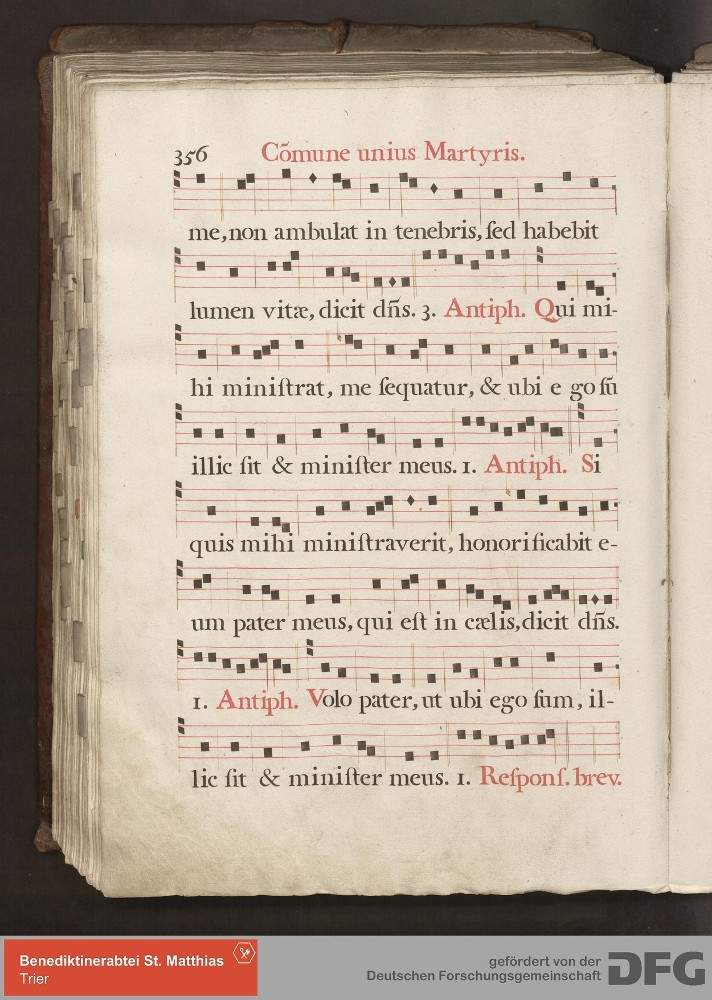 356 Cõmune unius Martyris.
me, non ambulat in tenebris, ſed habebit
lumen vitæ, dicit dñs. 3. Antiph. Qui mi-
hi miniſtrat, me ſequatur, & ubi e go ſũ
illic ſit & miniſter meus. 1. Antiph. Si
quis mihi miniſtraverit, honorificabit e-
um pater meus, qui eſt in cælis, dicit dñs.
1. Antiph. Volo pater, ut ubi ego ſum, il-
lic ſit & miniſter meus. 1. Reſponſ. brev.
Benediktinerabtei St. Matthias
Trier
gefördert von der
Deutschen Forschungsgemeinschaft
DFG